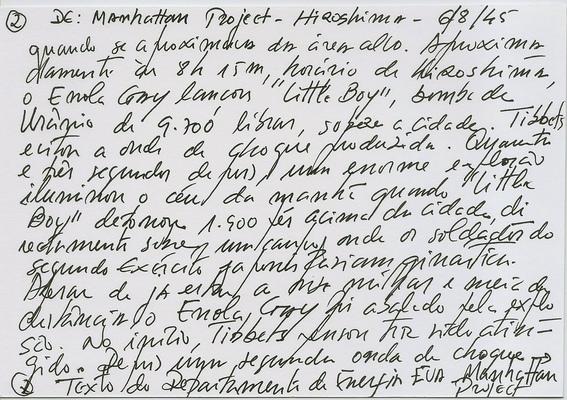 ② DE: Manhattan Project - Hiroshima - 6/8/45
quando se aproximava da área alvo. Aproxima
damente às 8h 15m, horário de Hiroshima,
o Enola Gay lançou "Little Boy", bomba de
Urânio de 9.700 libras, sobre a cidade. Tibbets
a onda de choque produzida. Quarenta
e três segundos depois, uma enorme explosão
iluminou o céu da manhã quando "Little
Boy" detonou 1.900 pés acima da cidade, di
retamente sobre um campo onde os soldados do
segundo Exército faziam ginástica.
Apesar de já estar a onze milhas e meia de
distância o Enola Gay foi pela explo
são. No início, Tibbets pensou ter sido atin-
gido. Depois uma segunda onda de choque →
② Texto do Departamento de Energia EUA - Manhattan
Project